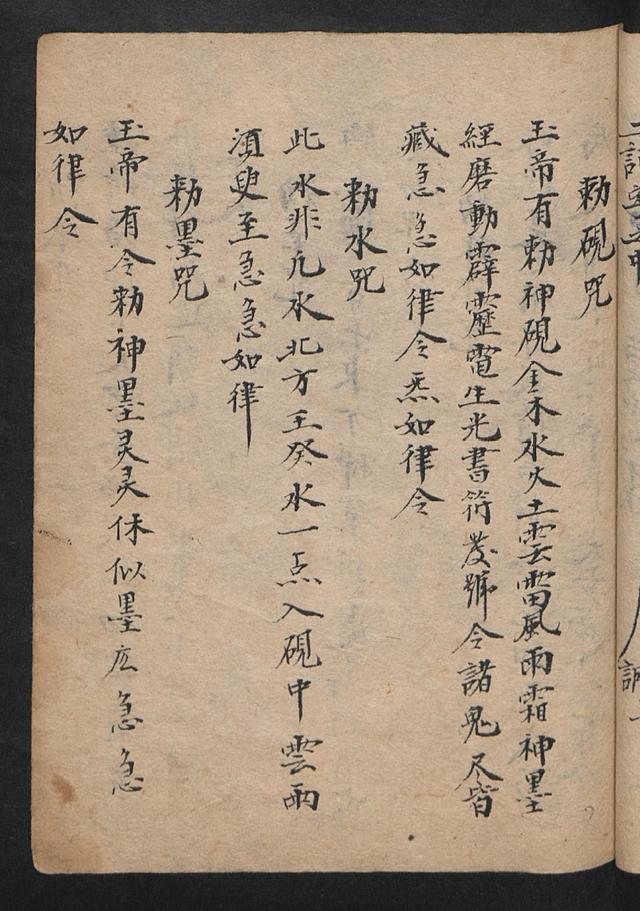 勅硯咒
玉帝有勅神硯金木水火土雲雷風雨霜神墨
經磨動霹靂電生光書符發號令諸鬼尽皆
藏急急如律令炁如律令
勅水咒
此水非凡水北方壬癸水一点入硯中雲雨
須臾至急急如律
勅墨咒
玉帝有令勅神墨灵灵休似墨広急急
如律令